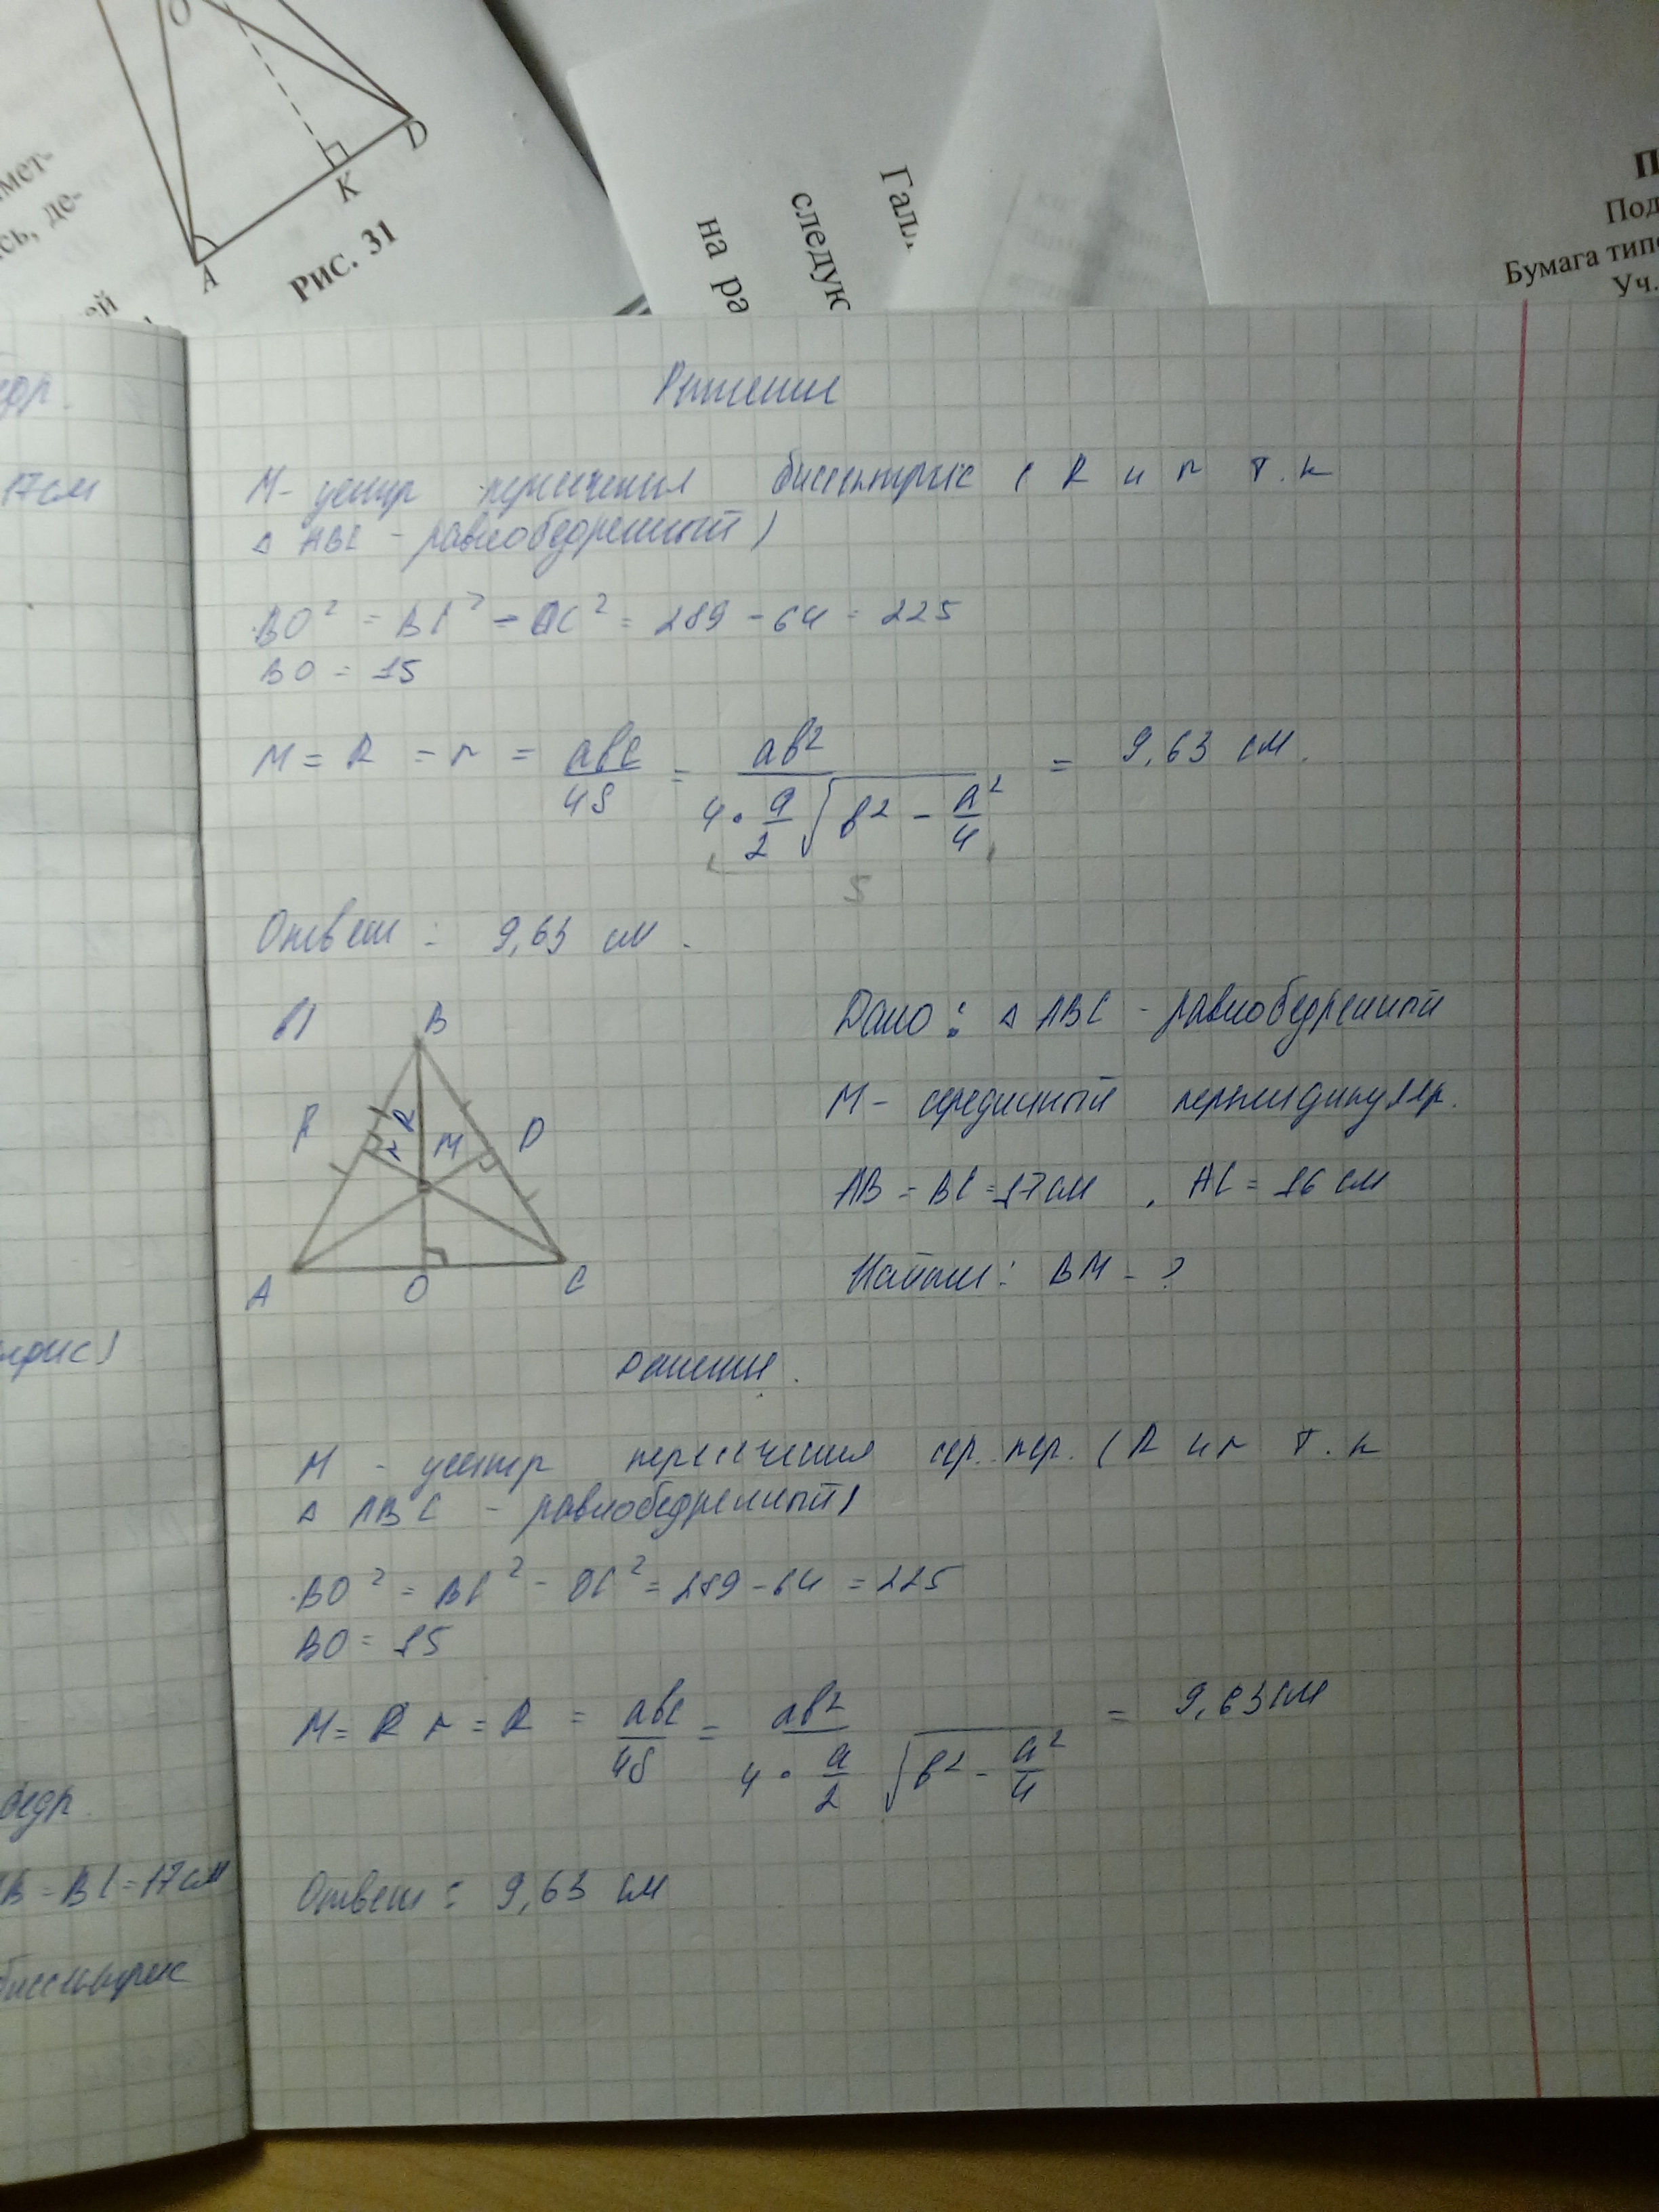 O
D
K
A
Рис. 31
мет-
сь, де-
ей
Галл
следую
на ра
П
Под
Бумага типо
Уч.
едр.
17см
Решение
М - центр пересечения биссектрис ( R и r т.к
△ ABC - равнобедренный )
BO² = BC² - OC² = 289 - 64 = 225
BO = 15
M = R = r = abc/4S = ab²/(4 · a/2 √(b² - a²/4)) = 9,63 см.
S
Ответ : 9,63 см.
в)
B
R
M
D
r
A
O
C
Дано : △ ABC - равнобедренный
М - серединный перпендикуляр.
AB = BC = 17 см , AC = 16 см
Найти : BM - ?
трис)
Решение.
М - центр пересечения сер. пер. ( R и r т.к
△ ABC - равнобедренный)
BO² = BC² - OC² = 289 - 64 = 225
BO = 15
M = R r = R = abc/4S = ab²/(4 · a/2 √(b² - a²/4)) = 9,63 см
бедр.
B = BC = 17 см
Ответ : 9,63 см
биссектрис